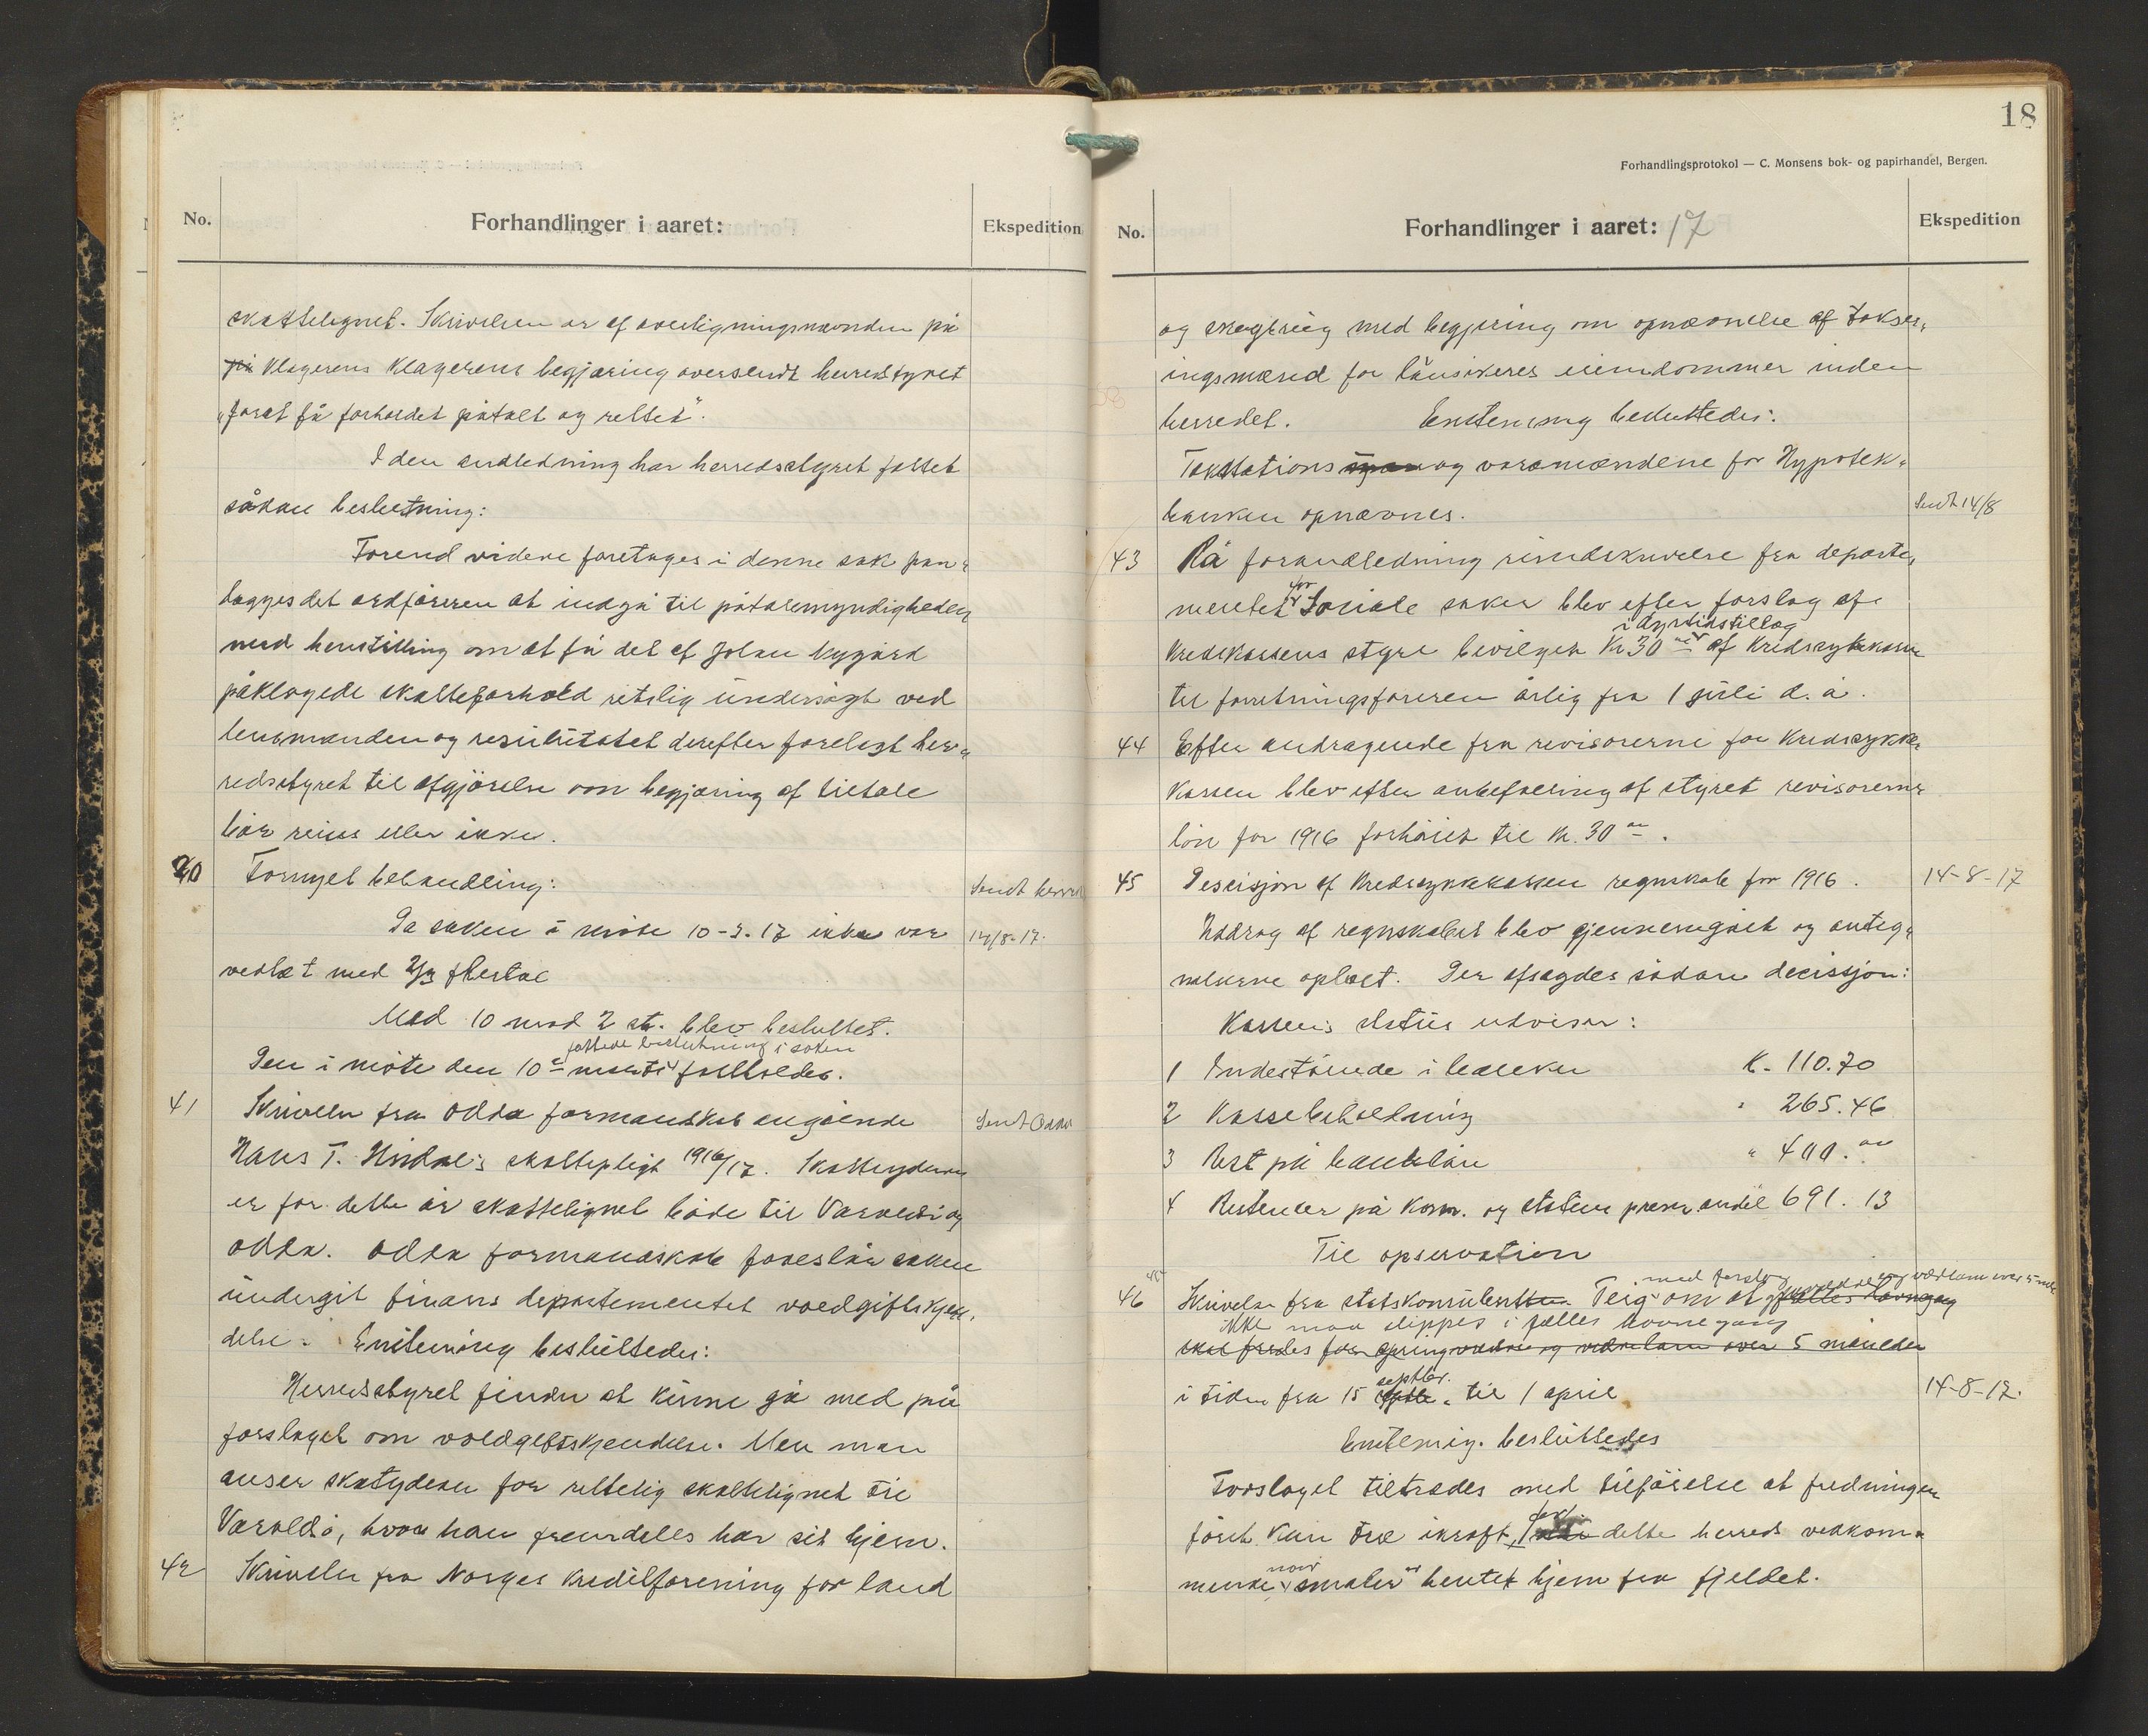 No.
Forhandlinger i aaret:
Ekspedition
skattelignet. Skrivelsen er af overligningsnævnden på
på Klagerens Klagerens begjæring oversendt herredstyret
"forat få forholdet påtalt og rettet".
I den andledning har herredsstyret fattet
sådan beslutning:
Forend videre foretages i denne sak pån=
lægges det ordføreren at indgå til påtalemyndigheden
med henstilling om at få det af Johan Nygård
påklagede skatteforhold retslig undersøgt ved
lensmanden og resultatet derefter forelagt her=
redsstyret til afgjørelse om begjæring af tiltale
bør reises eller ikke.
20 Fornyet behandling:
Sendt herred
Da saken i møte 10-3-17 ikke var
14/8-17.
vedtat med 2/3 flertal
Med 10 mod 2 st. blev besluttet.
fattede beslutning i saken
Den i møte den 10de marts fastholdes.
41 Skrivelse fra Odda formandskab angående
Sendt Odda
Hans T. Hindal's skattepligt 1916/17. Skatteyderen
er for dette år skattelignet både til Varaldsø og
Odda. Odda formandskab foreslår saken
undergit finans departementet voldgiftskjen=
delse. Enstemmig besluttedes:
Herredsstyret finder at kunne gå med på
forslaget om voldgiftskjendelse. Men man
anser skatyderen for rettelig skattelignet til
Varaldsø, hvor han fremdeles har sit hjem.
42 Skrivelse fra Norges Kreditforening for land
18
Forhandlingsprotokol — C. Monsens bok- og papirhandel, Bergen.
No.
Forhandlinger i aaret: 17
Ekspedition
og skogbrug med begjæring om opnævnelse af takser=
ingsmænd for låusøkeres eiendommer inden
herredet. Enstemmig besluttedes:
Takstations og varamændene for Hypotek=
banken opnævnes.
Sendt 14/8
43 På forandledning rundskrivelse fra departe=
for
mentet Sociale saker blev efter forslag af
i dyrtidstillæg
Kredskassens styre bevilget Kr 30 af Kredssykekasse
til forretningsføreren årlig fra 1 juli d. å.
44 Efter andragende fra revisorerne for Kredssyke=
kassen blev efter anbefaling af styret revisorernes
løn for 1916 forhøiet til kr. 30.
45 Desisjon af Kredssykekassen regnskab for 1916.
14-8-17
Utdrag af regnskabet blev gjennemgået og anteg=
nelserne oplæst. Der afsagdes sådan decissjon:
Kassens status utviser:
1 Indestående i banken K. 110.70
2 Kassebeholdning " 265.46
3 Rest på banklån " 400.
4 Restancer på Kom. og statens prem. andel 691.13
Til opservation
med forslag værlam over 5 mdr
46 Skrivelse fra statskonsulent Teig om at fælles havnegang
ikke maa slippes i fælles havnegang
skal fredes for springvædre og vædrelam over 5 måneder
septbr.
i tiden fra 15 til 1 april
14-8-17.
Enstemmig besluttedes
Forslaget tiltrædes med tilføielse at fredningen
for
først kan træ ikraft dette herreds vedkom=
naar
mende smaler er hentet hjem fra fjeldet.